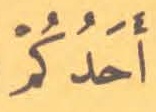 أَحَدُكُمْ